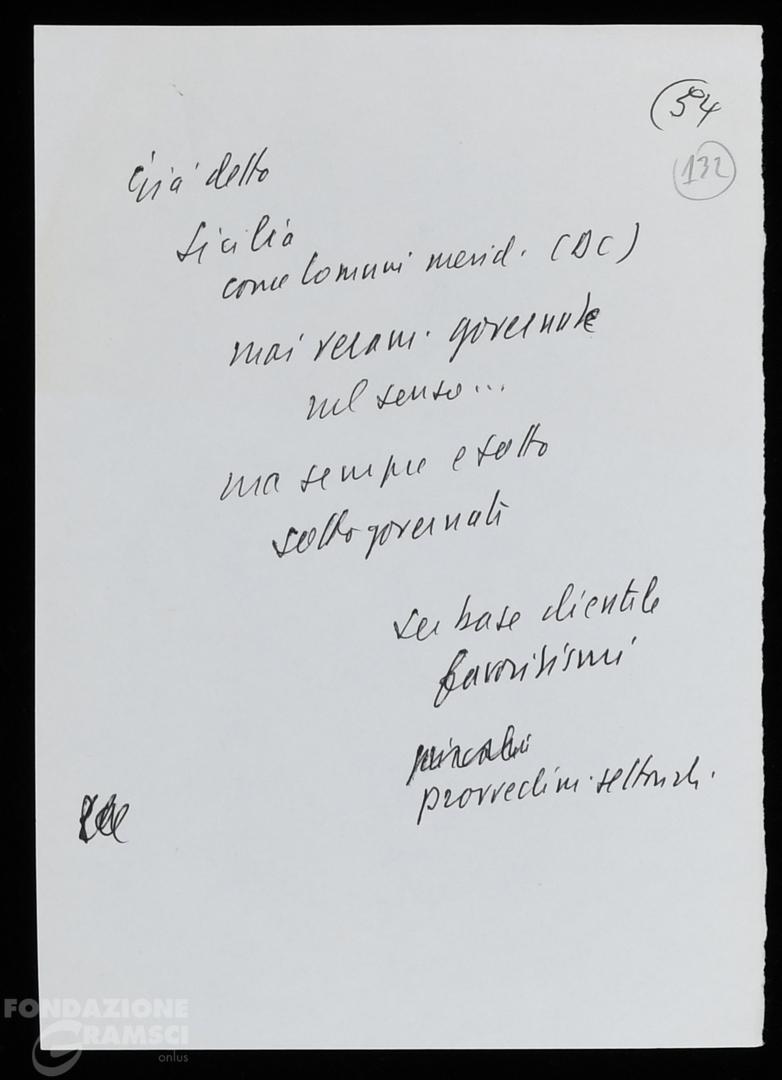 (54
132
Già detto
Sicilia
come Comuni merid. (DC)
mai veram. governate
nel senso...
ma sempre e soltto
sottogovernati
su base clientele
favoritismi
provvedim. settorali.
FONDAZIONE
GRAMSCI
onlus